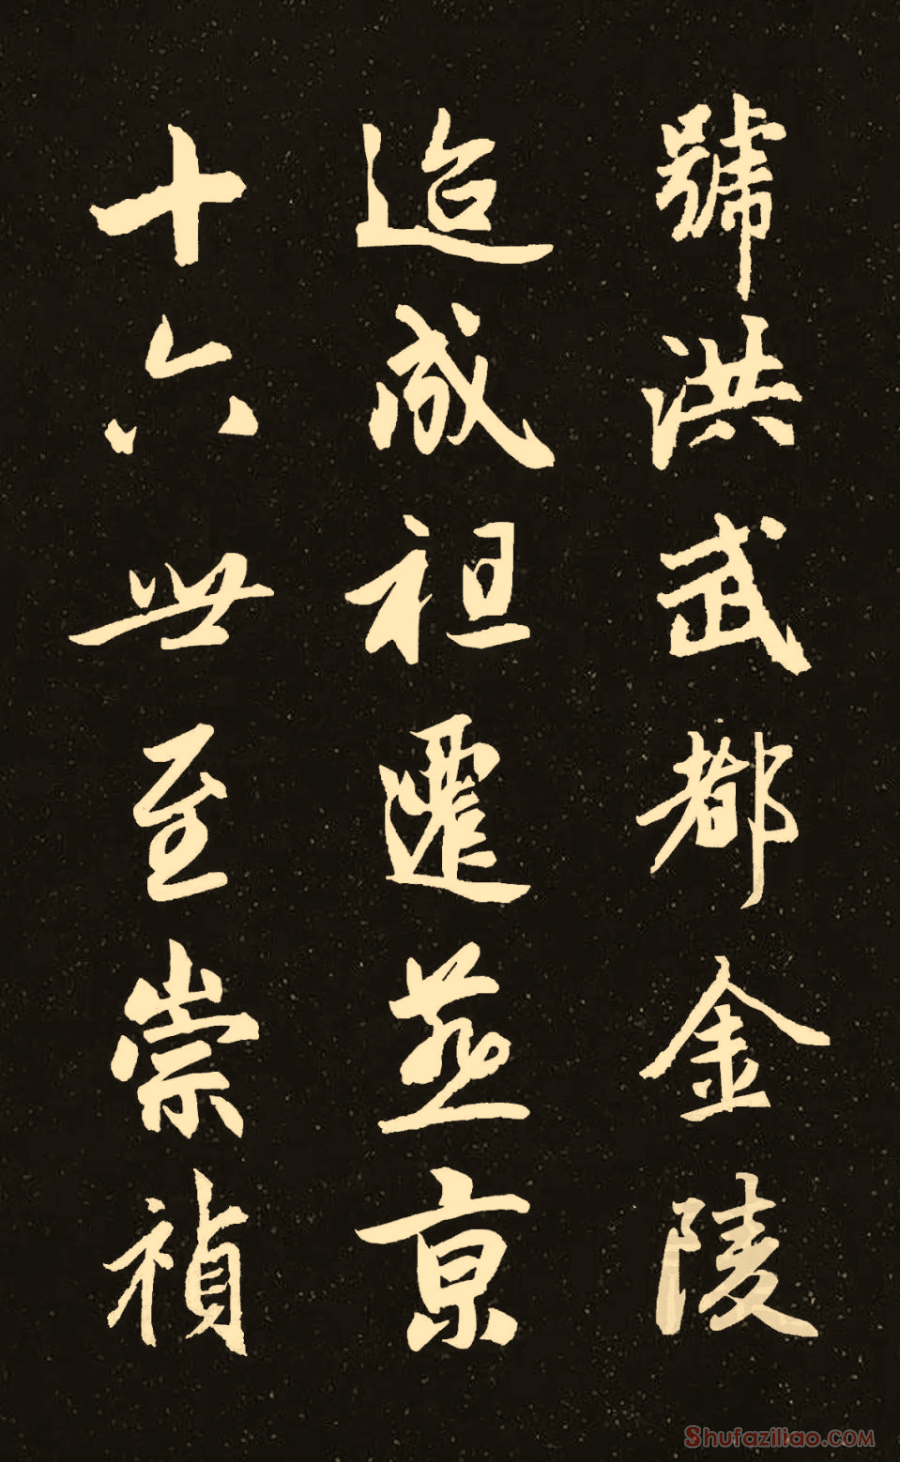 號洪武都金陵
迨成祖遷燕京
十六世至崇禎
Shufaziliao.com